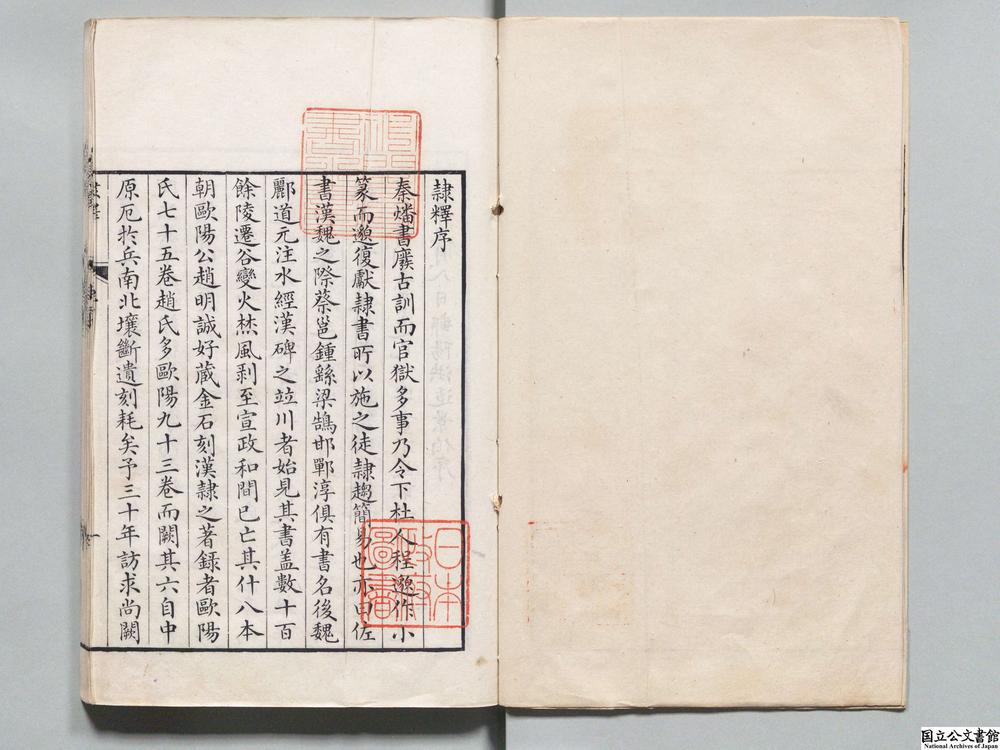 隷釋序
秦燔書廢古訓而官獄多事乃令下杜人程邈作小
篆而邈復獻隷書所以施之徒隷趨簡易也亦曰佐
書漢魏之際蔡邕鍾繇梁鵠邯鄲淳俱有書名後魏
酈道元注水經漢碑之竝川者始見其書盖數十百
餘陵遷谷變火焚風剥至宣政和間已亡其什八本
朝歐陽公趙明誠好蔵金石刻漢隷之著録者歐陽
氏七十五卷趙氏多歐陽九十三卷而闕其六自中
原厄於兵南北壤斷遺刻耗矣予三十年訪求尚闕
日本
政府
圖書
国立公文書館
National Archives of Japan